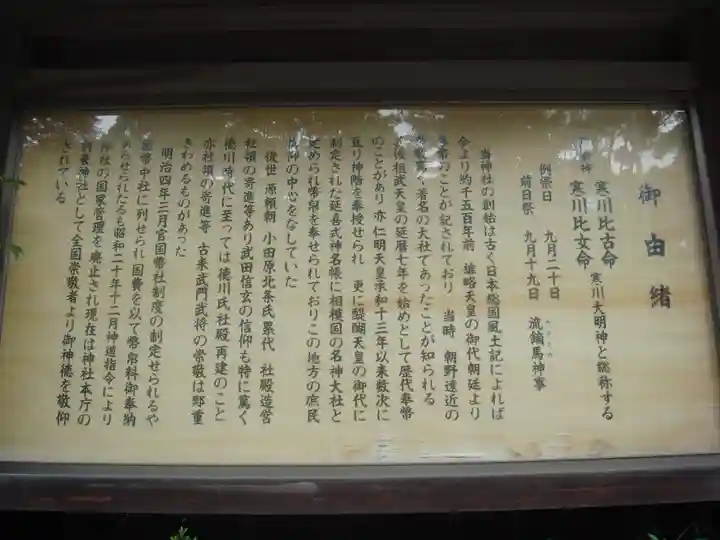 御由緒
寒川比古命
寒川比女命
寒川大明神と総称する
例祭日 九月二十日
前日祭 九月十九日 流鏑馬神事
当神社の創始は古く日本総国風土記によれば
今より約千五百年前 雄略天皇の御代朝廷より
のことが記されており 当時 朝野遠近の
著名の大社であったことが知られる
後桓武天皇の延暦七年を始めとして歴代奉幣
のことがあり 亦仁明天皇承和十三年以来数次に
亘り神階を奉授せられ 更に醍醐天皇の御代に
制定された延喜式神名帳に相模国の名神大社と
定められ幣帛を奉せられておりこの地方の庶民
信仰の中心をなしていた
後世 源頼朝 小田原北条氏累代 社殿造営
社領の寄進等あり武田信玄の信仰も特に篤く
徳川時代に至っては徳川氏社殿再建のこと
亦社領の寄進等 古来武門武将の崇敬は野重
きわめるものがあった
明治四年三月官国幣社制度の制定せられるや
国幣中社に列せられ国費を以て幣帛料御奉納
あらせられたるも昭和二十年十二月神道指令により
神社の国家管理を廃止され現在は神社本庁の
別表神社として全国崇敬者より御神徳を敬仰
されている